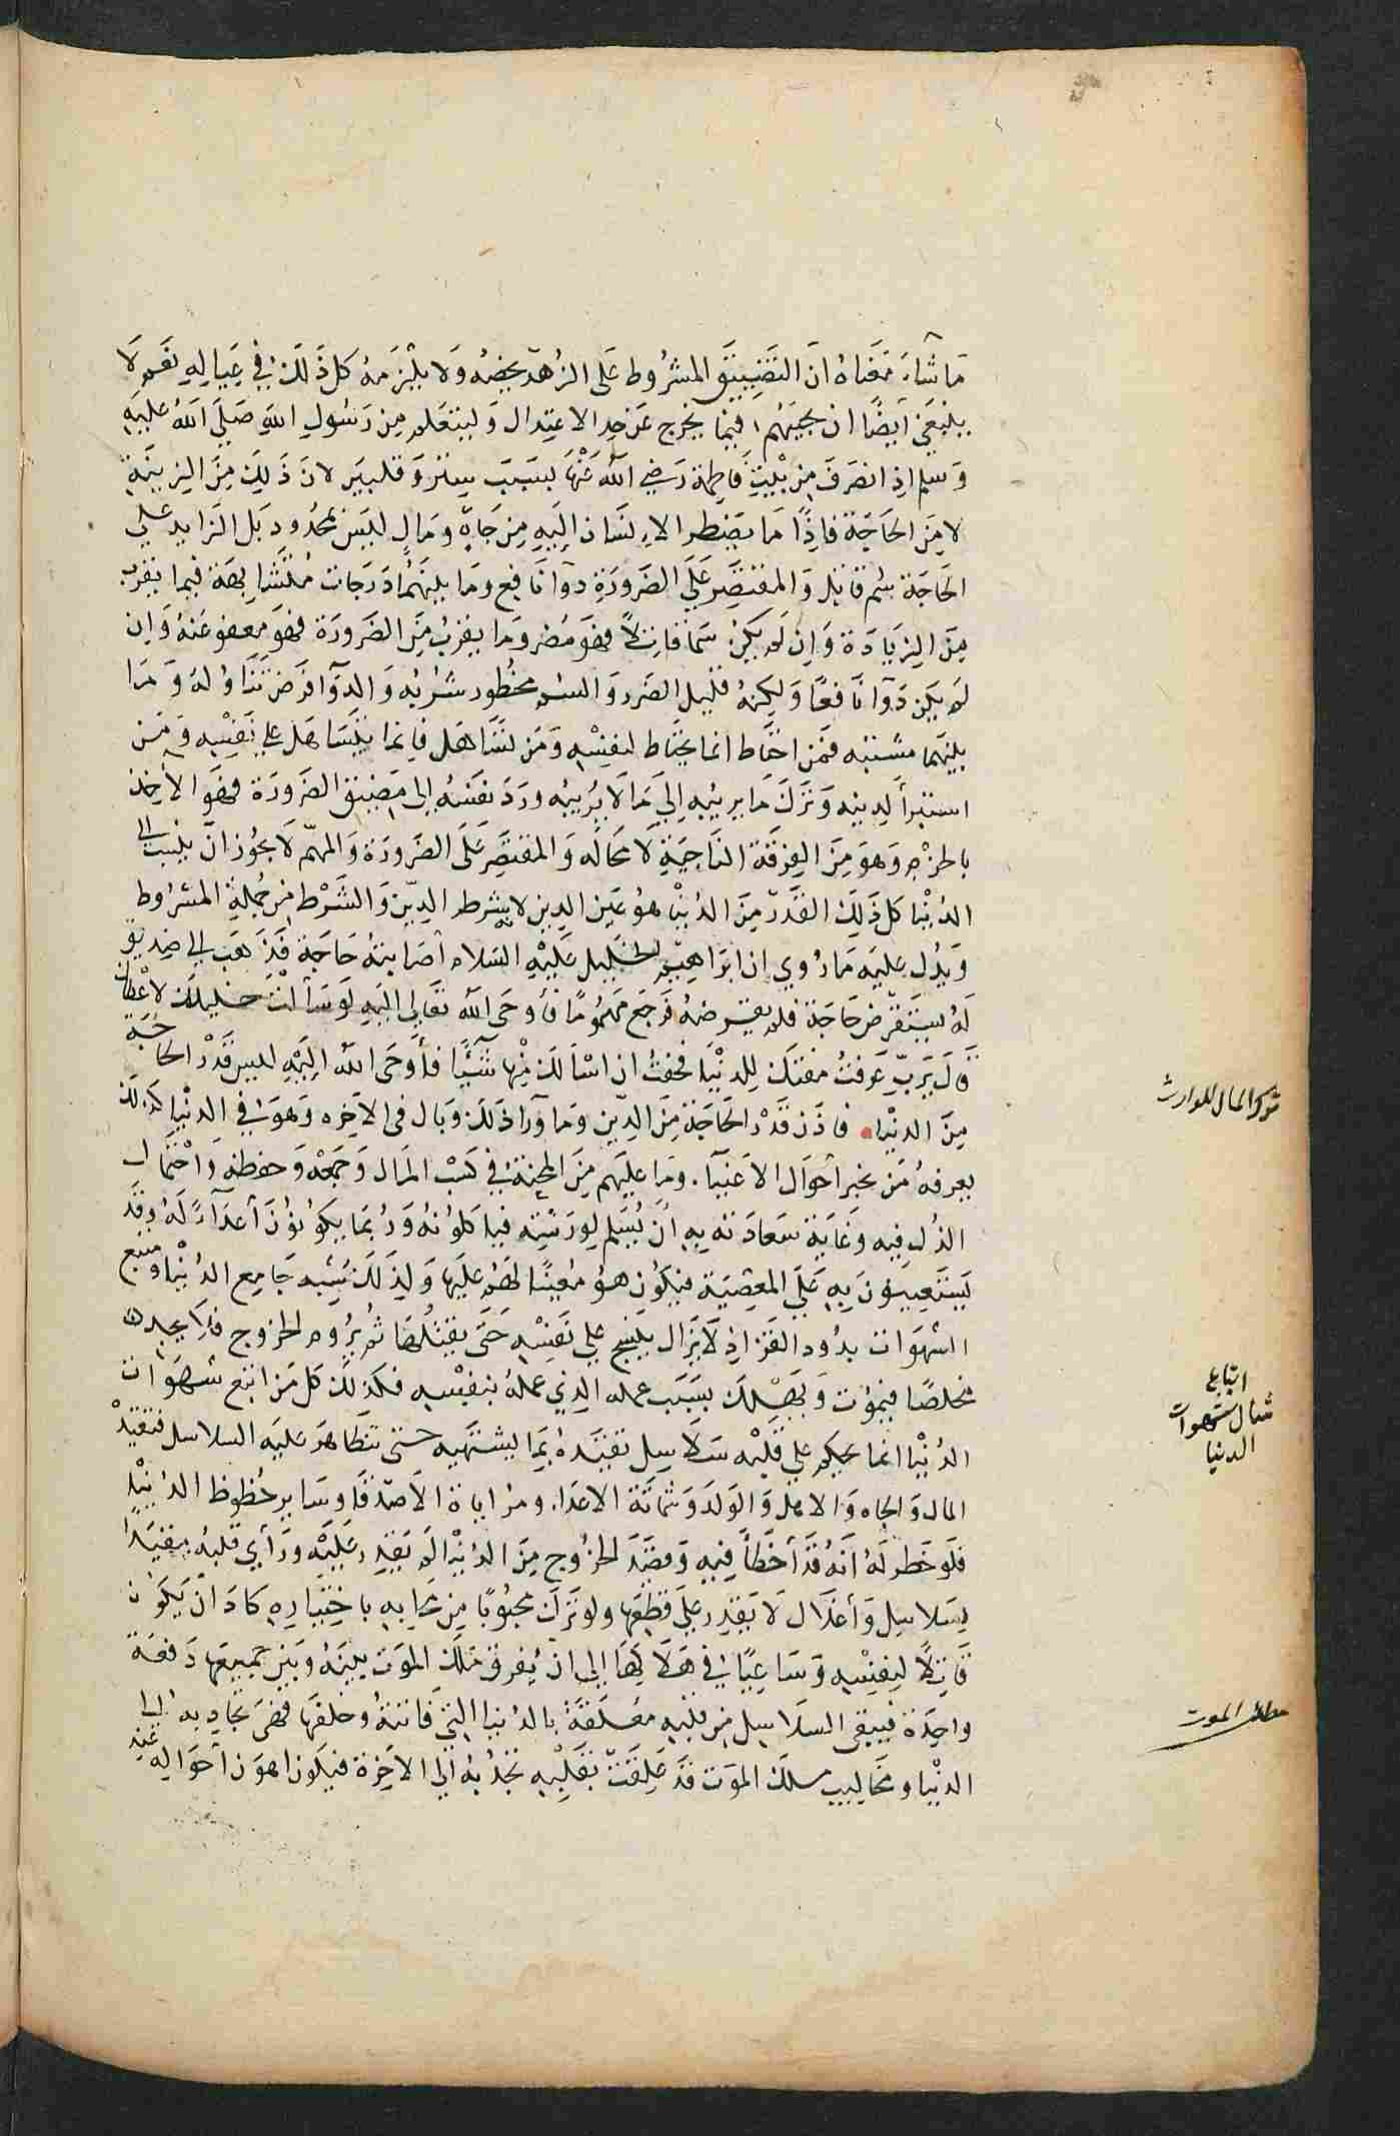 ما شاء معناه ان التضييق المشروط على الزهد يخصه ولا يلزمه كل ذلك في عياله نعم لا
ينبغي ايضا ان يجيبهم فيما يخرج عن حد الاعتدال وليتعلم من رسول الله صلى الله عليه
وسلم اذ انصرف من بيت فاطمة رضي الله عنها بسبب ستر وقلبين لان ذلك من الزينة
لا من الحاجة فاذا ما يضطر الانسان اليه من جاه ومال ليس بمحدود بل الزايد على
الحاجة سم قاتل والمقتصر على الضرورة دوآ نافع وما بينهما درجات متشابهة فيما يقرب
من الزيادة وان لم يكن سما قاتلا فهو مضر وما يقرب من الضرورة فهو معفو عنه وان
لم يكن دوآ نافعا ولكنه قليل الضرر والسم محظور شربه والدوآ فرض تناوله وما
بينهما مشتبه فمن احتاط انما يحتاط لنفسه ومن تساهل فانما يتساهل على نفسه ومن
استبرأ لدينه وترك ما يريبه الى ما لا يريبه ورد نفسه الى مضيق الضرورة فهو الاخذ
بالحزم وهو من الفرقة الناجية لا محاله والمقتصر على الضرورة والمهم لا يجوز ان ينسب الى
الدنيا كل ذلك القدر من الدنيا هو عين الدين لانه شرط الدين والشرط من جملة المشروط
ويدل عليه ما روي ان ابراهيم الخليل عليه السلام اصابته حاجة فذهب الى صديق
له يستقرض حاجة فلم يقرضه فرجع مهموما فأوحى الله تعالى اليه لو سألت خليلك لاعطاك
قال يرب عرفت مقتك للدنيا فخفت ان اسألك منها شيئا فأوحى الله اليه ليس قدر الحاجة
من الدنيا فاذن قدر الحاجة من الدين وما ورآ ذلك وبال في الاخره وهو في الدنيا كذلك
يعرفه من يخبر أحوال الاغنيآ وما عليهم من المحنة في كسب المال وجمعه وحفظه واحتمال
الذل فيه وغاية سعادته به أن يسلم لورثته فياكلونه وربما يكونون أعدآءً له وقد
يستعينون به على المعصية فيكون هو معينا لهم عليها ولذلك شبه جامع الدنيا ومتبع
الشهوات بدود القز اذ لا يزال ينسج على نفسه حتى يقتلها ثم يروم الخروج فلا يجد
مخلصا فيموت ويهلك بسبب عمله الذي عمله بنفسه فكذلك كل من اتبع شهوات
الدنيا انما يحكم على قلبه سلاسل تقيده بما يشتهيه حتى تتظاهر عليه السلاسل فتقيده
المال والجاه والاهل والولد وشماتة الاعدا ومراياة الاصدقا وساير حظوظ الدنيا
فلو خطر له انه قد أخطأ فيه وقصد الخروج من الدنيا لم يقدر عليه ورأى قلبه مقيدا
بسلاسل وأغلال لا يقدر على قطعها ولو ترك محبوبا من محابه باختياره كاد ان يكون
قاتلا لنفسه وساعيا في هلاكها الى ان يفرق ملك الموت بينه وبين جميعها دفعة
واحدة فيبقى السلاسل من قلبه معلقة بالدنيا التي فاتته وخلفها فهي تجاذبه الى
الدنيا ومخاليب ملك الموت قد علقت بقلبه تجذبه الى الاخرة فيكون اهون أحواله عند
ترك المال للوارث
اتباع
مثال شهوات
الدنيا
الموت